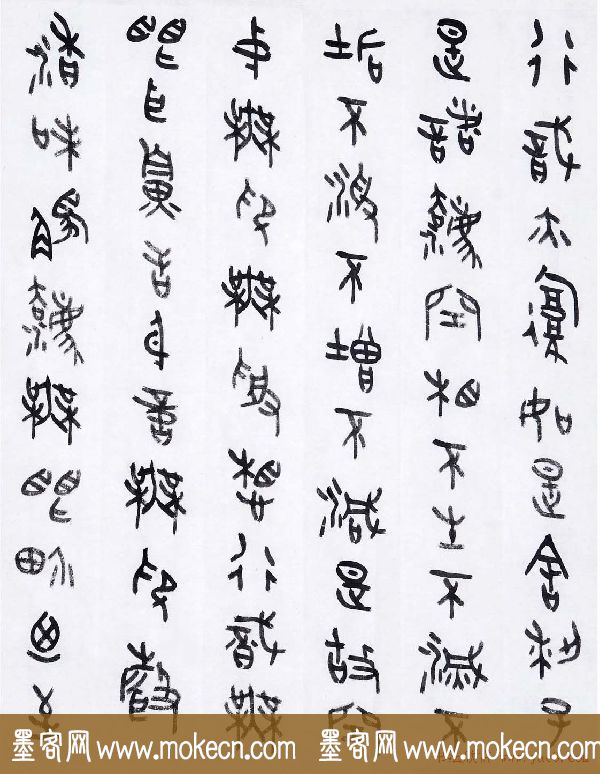 行識亦復如是舍利子
是諸法空相不生不滅不
垢不淨不增不減是故空
中無色無受想行識無
眼耳鼻舌身意無色聲
香味觸法無眼界乃至
墨客网 www.mokecn.com 墨客网 www.mokecn.com